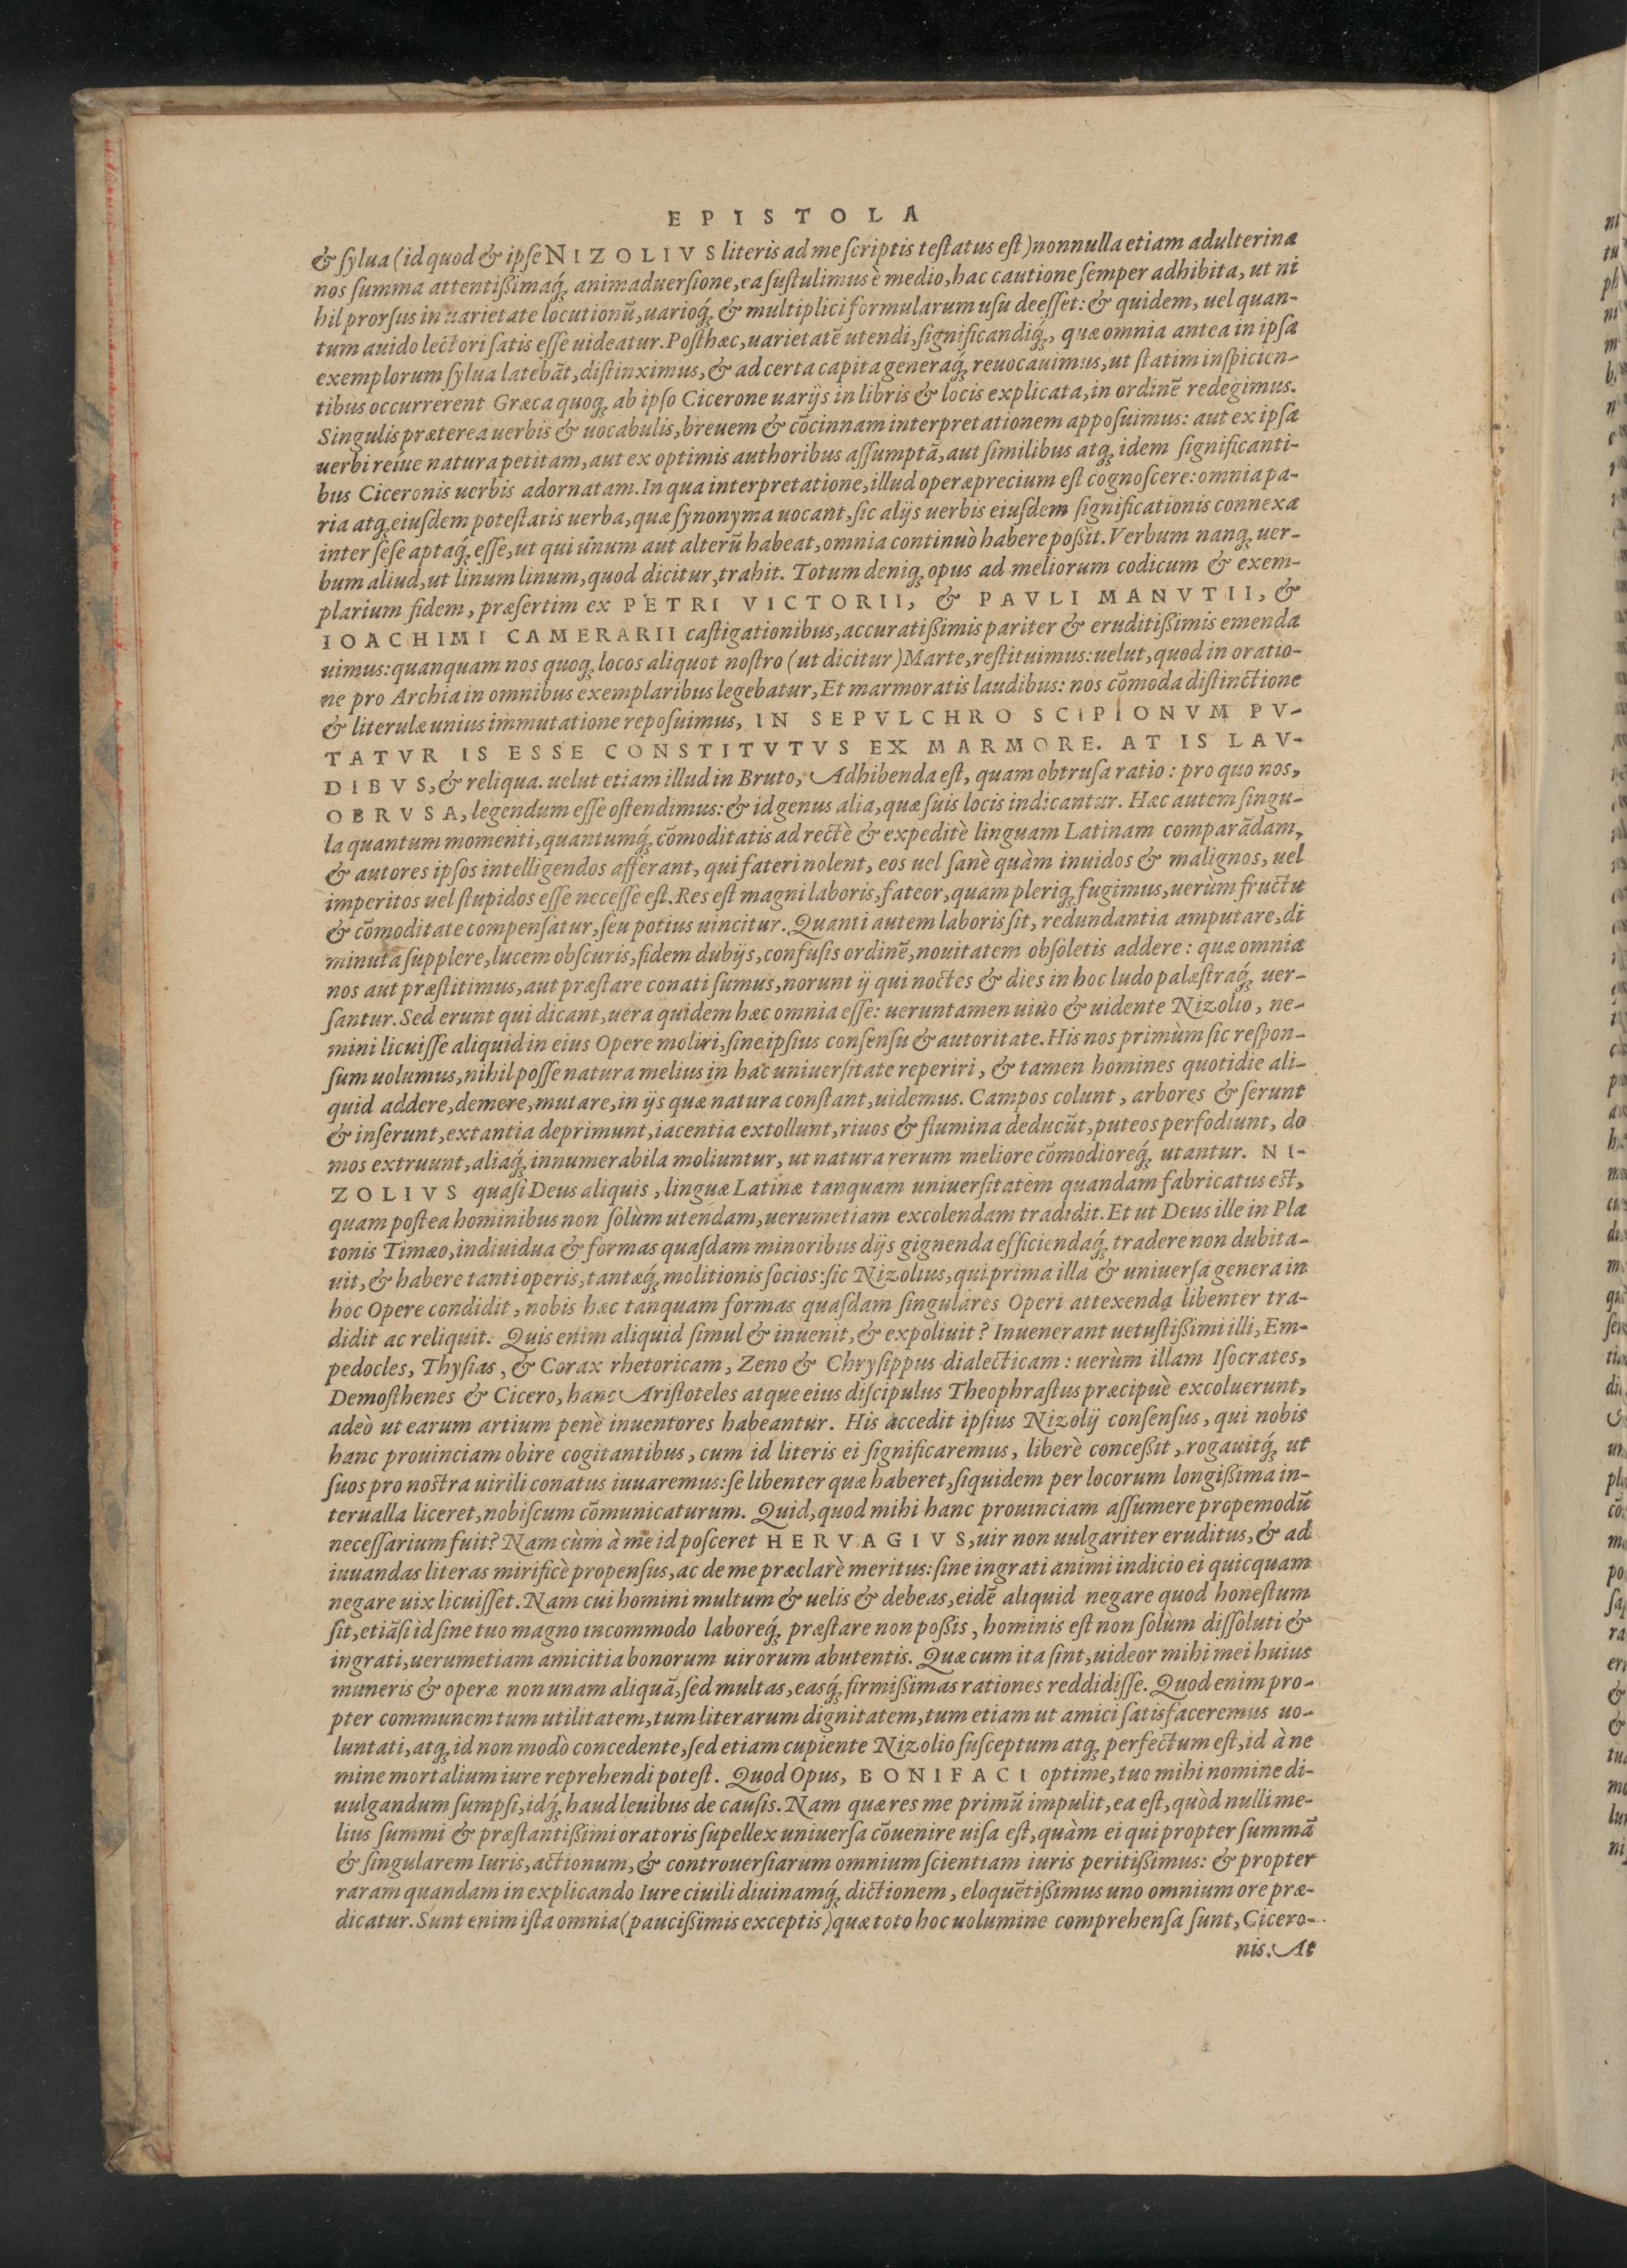 EPISTOLA
& sylua (id quod & ipse NIZOLIVS literis ad me scriptis testatus est) nonnulla etiam adulterina
nos summa attentißimaq́; animaduersione, ea sustulimus è medio, hac cautione semper adhibita, ut ni
hil prorsus in uarietate locutionū, uarioq́; & multiplici formularum usu deesset: & quidem, uel quan-
tum auido lectori satis esse uideatur. Posthæc, uarietatē utendi, significandiq́;, quæ omnia antea in ipsa
exemplorum sylua latebāt, distinximus, & ad certa capita generaq́; reuocauimus, ut statim inspicien-
tibus occurrerent Græca quoq; ab ipso Cicerone uarijs in libris & locis explicata, in ordinē redegimus.
Singulis præterea uerbis & uocabulis, breuem & cōcinnam interpretationem apposuimus: aut ex ipsa
uerbi reíue natura petitam, aut ex optimis authoribus assumptā, aut similibus atq; idem significanti-
bus Ciceronis uerbis adornatam. In qua interpretatione, illud operæprecium est cognoscere: omnia pa-
ria atq; eiusdem potestatis uerba, quæ synonyma uocant, sic alijs uerbis eiusdem significationis connexa
inter sese aptaq́; esse, ut qui unum aut alterū habeat, omnia continuò habere poßit. Verbum nanq; uer-
bum aliud, ut linum linum, quod dicitur, trahit. Totum deniq; opus ad meliorum codicum & exem-
plarium fidem, præsertim ex PETRI VICTORII, & PAVLI MANVTII, &
IOACHIMI CAMERARII castigationibus, accuratißimis pariter & eruditißimis emenda
uimus: quanquam nos quoq; locos aliquot nostro (ut dicitur) Marte, restituimus: uelut, quod in oratio-
ne pro Archia in omnibus exemplaribus legebatur, Et marmoratis laudibus: nos cōmoda distinctione
& literulæ unius immutatione reposuimus, IN SEPVLCHRO SCIPIONVM PV-
TATVR IS ESSE CONSTITVTVS EX MARMORE. AT IS LAV-
DIBVS, & reliqua. uelut etiam illud in Bruto, Adhibenda est, quam obtrusa ratio: pro quo nos,
OBRVSA, legendum esse ostendimus: & id genus alia, quæ suis locis indicantur. Hæc autem singu-
la quantum momenti, quantumq́; cōmoditatis ad rectè & expeditè linguam Latinam comparādam,
& autores ipsos intelligendos afferant, qui fateri nolent, eos uel sanè quàm inuidos & malignos, uel
imperitos uel stupidos esse necesse est. Res est magni laboris, fateor, quam pleriq; fugimus, uerùm fructu
& cōmoditate compensatur, seu potius uincitur. Quanti autem laboris sit, redundantia amputare, di
minuta supplere, lucem obscuris, fidem dubijs, confusis ordinē, nouitatem obsoletis addere: quæ omnia
nos aut præstitimus, aut præstare conati sumus, norunt ij qui noctes & dies in hoc ludo palæstraq́; uer-
santur. Sed erunt qui dicant, uera quidem hæc omnia esse: ueruntamen uiuo & uidente Nizolio, ne-
mini licuisse aliquid in eius Opere moliri, sine ipsius consensu & autoritate. His nos primùm sic respon-
sum uolumus, nihil posse natura melius in hac uniuersitate reperiri, & tamen homines quotidie ali-
quid addere, demere, mutare, in ijs quæ natura constant, uidemus. Campos colunt, arbores & serunt
& inserunt, extantia deprimunt, iacentia extollunt, riuos & flumina deducūt, puteos perfodiunt, do
mos extruunt, aliaq́; innumerabila moliuntur, ut natura rerum meliore cōmodioreq́; utantur. NI-
ZOLIVS quasi Deus aliquis, linguæ Latinæ tanquam uniuersitatem quandam fabricatus est,
quam postea hominibus non solùm utendam, uerumetiam excolendam tradidit. Et ut Deus ille in Pla
tonis Timæo, indiuidua & formas quasdam minoribus dijs gignenda efficiendaq́; tradere non dubita-
uit, & habere tanti operis, tantæq́; molitionis socios: sic Nizolius, qui prima illa & uniuersa genera in
hoc Opere condidit, nobis hæc tanquam formas quasdam singulares Operi attexenda libenter tra-
didit ac reliquit. Quis enim aliquid simul & inuenit, & expoliuit? Inuenerant uetustißimi illi, Em-
pedocles, Thysias, & Corax rhetoricam, Zeno & Chrysippus dialecticam: uerùm illam Isocrates,
Demosthenes & Cicero, hanc Aristoteles atque eius discipulus Theophrastus præcipuè excoluerunt,
adeò ut earum artium penè inuentores habeantur. His accedit ipsius Nizolij consensus, qui nobis
hanc prouinciam obire cogitantibus, cum id literis ei significaremus, liberè conceßit, rogauitq́; ut
suos pro nostra uirili conatus iuuaremus: se libenter quæ haberet, siquidem per locorum longißima in-
terualla liceret, nobiscum cōmunicaturum. Quid, quod mihi hanc prouinciam assumere propemodū
necessarium fuit? Nam cùm à me id posceret HERVAGIVS, uir non uulgariter eruditus, & ad
iuuandas literas mirificè propensus, ac de me præclarè meritus: sine ingrati animi indicio ei quicquam
negare uix licuisset. Nam cui homini multum & uelis & debeas, eidē aliquid negare quod honestum
sit, etiāsi id sine tuo magno incommodo laboreq́; præstare non poßis, hominis est non solùm dissoluti &
ingrati, uerumetiam amicitia bonorum uirorum abutentis. Quæ cum ita sint, uideor mihi mei huius
muneris & operæ non unam aliquā, sed multas, easq́; firmißimas rationes reddidisse. Quod enim pro-
pter communem tum utilitatem, tum literarum dignitatem, tum etiam ut amici satisfaceremus uo-
luntati, atq; id non modò concedente, sed etiam cupiente Nizolio susceptum atq; perfectum est, id à ne
mine mortalium iure reprehendi potest. Quod Opus, BONIFACI optime, tuo mihi nomine di-
uulgandum sumpsi, idq́; haud leuibus de causis. Nam quæ res me primū impulit, ea est, quòd nulli me-
lius summi & præstantißimi oratoris supellex uniuersa cōuenire uisa est, quàm ei qui propter summā
& singularem Iuris, actionum, & controuersiarum omnium scientiam iuris peritißimus: & propter
raram quandam in explicando Iure ciuili diuinamq́; dictionem, eloquētißimus uno omnium ore præ-
dicatur. Sunt enim ista omnia (paucißimis exceptis) quæ toto hoc uolumine comprehensa sunt, Cicero-
nis. At